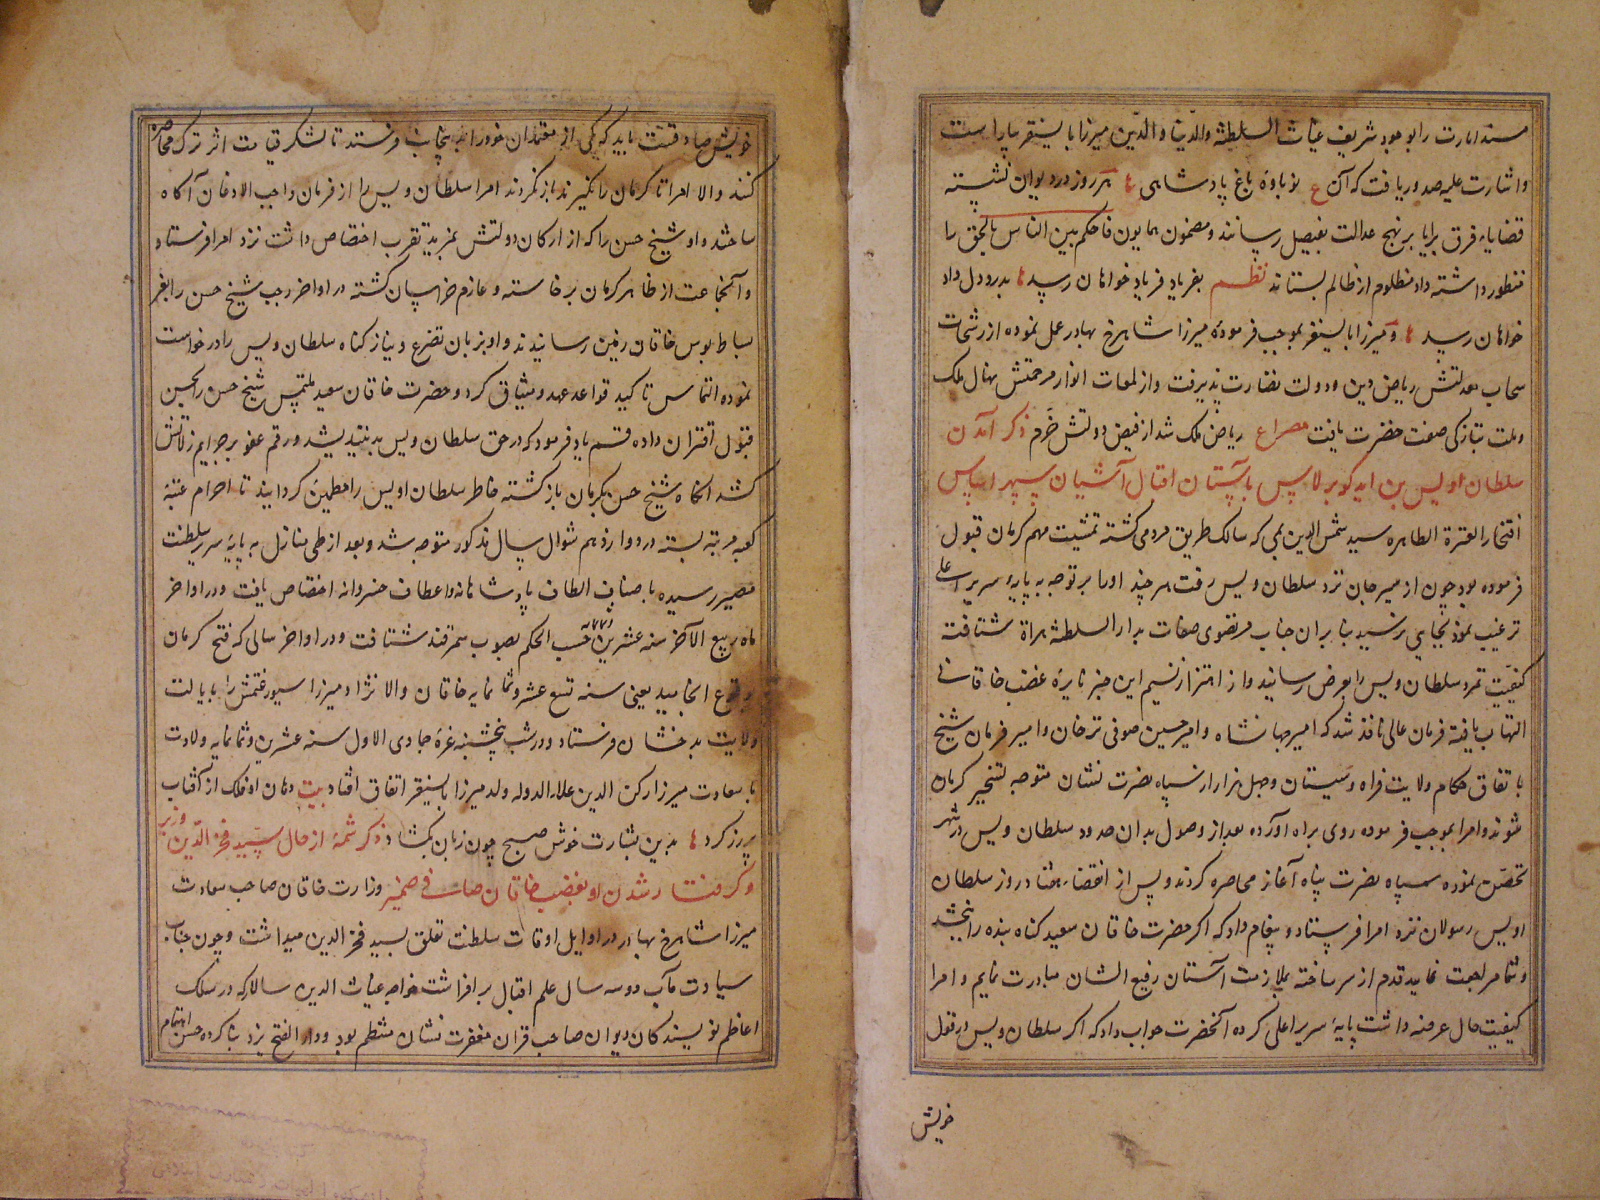 مسند امارت را بوجود شریف غیاث السلطنه والدنیا والدین میرزا بایسنقر بیاراست
و اشارت علیه صدور یافت که آن ع نوباوه باغ پادشاهی ؛ هر روز در دیوان نشسته
قضایاء فرق برایا بر نهج عدالت بفیصل رسانند و مضمون همایون فاحکم بین الناس بالحق را
منظور داشته داد مظلوم از ظالم بستاند نظم بفریاد فریاد خواهان رسید ؛ بدرد دل داد
خواهان رسید ؛ و میرزا بایسنغر بموجب فرموده میرزا شاهرخ بهادر عمل نموده از رشحات
سحاب معدلتش ریاض دین و دولت نضارت پذیرفت و از لمعات انوار مرحمتش نهال ملک
و ملت بتازکی صفت خضرت یافت مصراع ریاض ملک شد از فیض دولتش خرم ذکر آمدن
سلطان اویس بن ایدکو برلاس بآستان اقبال آشیان سپهر اساس
افتخار العترة الطاهره سید شمس الدین بمی که سالک طریق مردمی کشته تمشیت مهم کرمان قبول
فرموده بود چون از سیرجان نزد سلطان ویس رفت هر چند او را بر توجه به پایه سریر اعلی
ترغیب نمود بجایی نرسید بنابران جناب مرتضوی صفات بدار السلطنه هراة شتافته
کیفیت تمرد سلطان ویس را بعرض رسانید و از اهتزاز نسیم این خبر نایره غضب خاقانی
التهاب یافته فرمان عالی نافذ شد که امیر جهانشاه و امیر حسن صوفی ترخان و امیر فرمان شیخ
باتفاق حکام ولایت فراه و سیستان و چهل هزار از سپاه نصرت نشان متوجه تسخیر کرمان
شوند و امرا بموجب فرموده روی براه آورده بعد از وصول بدان حدود سلطان ویس در شهر
تحصن نموده سپاه نصرت پناه آغاز محاصره کردند و پس از انقضاء هفتاد روز سلطان
اویس رسولان نزد امرا فرستاد و پیغام داد که اکر حضرت خاقان سعید کناه بنده را بخشد
و شما مراجعت نمایید قدم از سر ساخته بملازمت آستان رفیع الشان مبادرت نمایم و امرا
کیفیت حال عرضه داشت پایه سریر اعلی کرده آنحضرت جواب داد که اکر سلطان ویس در قول
خویش
خویش صادقست باید که یکی از معتمدان خود را بدینجانب فرستد تا لشکر قیامت اثر ترک محاصره
کنند و الا امرا تا کرمان را نکیرند باز نکردند امرا سلطان ویس را از فرمان واجب الاذعان آکاه
ساختند و او شیخ حسن را که از ارکان دولتش بمزید تقرب اختصاص داشت نزد امرا فرستاد
و آنجماعت از ظاهر کرمان برخاسته و عازم خراسان کشته در اواخر رجب شیخ حسن را بعز
بساط بوس خاقان زمین رسانیدند و او بزبان تضرع و نیاز کناه سلطان ویس را درخواست
نموده التماس تاکید قواعد عهد و میثاق کرد و حضرت خاقان سعید ملتمس شیخ حسن را بحسن
قبول اقتران داده قسم یاد فرمود که در حق سلطان ویس بد نیندیشد و رقم عفو بر جرایم زلاتش
کشد انکاه شیخ حسن بکرمان بازکشته خاطر سلطان اویس را مطمئن کردانید تا احرام عتبه
کعبه مرتبه بسته در دوازدهم شوال سال مذکور متوجه شد و بعد از طی منازل به پایه سریر سلطنت
مصیر رسیده باصناف الطاف پادشاهانه و اعطاف خسروانه اختصاص یافت و در اواخر
ماه ربیع الآخر سنه عشرین و ثمانمایه حسب الحکم بصوب سمرقند شتافت و در اواخر سالی که فتح کرمان
وقوع انجامید یعنی سنه تسع عشر و ثمانمایه خاقان والانژاد میرزا سیورغتمش را بایالت
ولایت بدخشان فرستاد و در شب پنجشنبه غره جمادی الاول سنه عشرین و ثمانمایه ولادت
با سعادت میرزا رکن الدین علاء الدوله ولد میرزا بایسنقر اتفاق افتاد بیت دهان او فلک از آفتاب
پر زر کرد ؛ بدین بشارت خوش صبح چون زبان بکشاد ذکر شمه از حال سید فخر الدین وزیر
و کرفتار شدن او بغضب خاقان صافی ضمیر وزارت خاقان صاحب سعادت
میرزا شاهرخ بهادر در اوایل اوقات سلطنت تعلق بسید فخر الدین میداشت و چون جناب
سیادت مآب دو سه سال علم اقبال برافراشت خواجه غیاث الدین سالار که در سلک
اعاظم نویسندکان دیوان صاحب قران مغفرت نشان منتظم بود و دار الفتح یزد بنا کرده حسن اهتمام